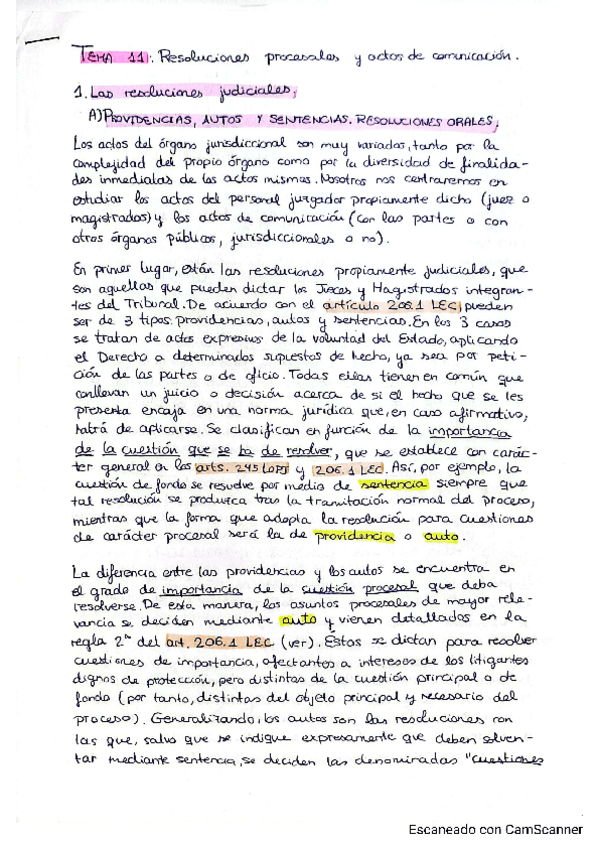 TEMA 11: Resoluciones procesales y actos de comunicación.
1. Las resoluciones judiciales;
A) PROVIDENCIAS, AUTOS Y SENTENCIAS. RESOLUCIONES ORALES;
Los actos del órgano jurisdiccional son muy variados, tanto por la
complejidad del propio órgano como por la diversidad de finalida-
des inmediatas de los actos mismos. Nosotros nos centraremos en
estudiar los actos del personal juzgador propiamente dicho (juez o
magistrados) y los actos de comunicación (con las partes o con
otros órganos públicos, jurisdiccionales o no).
En primer lugar, están las resoluciones propiamente judiciales, que
son aquellas que pueden dictar los Jueces y Magistrados integran-
tes del Tribunal. De acuerdo con el artículo 206.1 LEC, pueden
ser de 3 tipos: providencias, autos y sentencias. En los 3 casos
se tratan de actos expresivos de la voluntad del Estado, aplicando
el Derecho a determinados supuestos de hecho, ya sea por peti-
ción de las partes o de oficio. Todas ellas tienen en común que
conllevan un juicio o decisión acerca de si el hecho que se les
presenta encaja en una norma jurídica que, en caso afirmativo,
habrá de aplicarse. Se clasifican en función de la importancia
de la cuestión que se ha de resolver, que se establece con carác-
ter general en los arts. 245 LOPJ y 206.1 LEC. Así, por ejemplo, la
cuestión de fondo se resuelve por medio de sentencia siempre que
tal resolución se produzca tras la tramitación normal del proceso,
mientras que la forma que adopta la resolución para cuestiones
de carácter procesal será la de providencia o auto.
La diferencia entre las providencias y los autos se encuentra en
el grado de importancia de la cuestión procesal que deba
resolverse. De esta manera, los asuntos procesales de mayor rele-
vancia se deciden mediante auto y vienen detallados en la
regla 2ª del art. 206.1 LEC (ver). Estos se dictan para resolver
cuestiones de importancia, afectantes a intereses de los litigantes
dignos de protección, pero distintas de la cuestión principal o de
fondo (por tanto, distintas del objeto principal y necesario del
proceso). Generalizando, los autos son las resoluciones con
las que, salvo que se indique expresamente que deben solven-
tar mediante sentencia, se deciden las denominadas "cuestiones
Escaneado con CamScanner